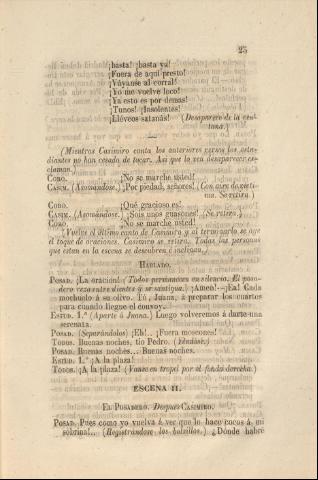 25
¡hasta! ¡basta ya!
¡Fuera de aquí presto!
¡Váyanse al corral!
¡Yo me vuelvo loco!
¡Ya esto es por demas!
¡Tunos! ¡Insolentes!
¡Lléveos satanás! (Desaparece de la ven-
tana.)
(Mientras Casimiro canta los anteriores versos los estu-
diantes no han cesado de tocar. Así que le ven desaparecer es-
claman.)
CORO. ¡No se marche usted!
CASIM. (Asomándose.) ¡Por piedad, señores! (Con aire de vícti-
ma. Se retira.)
CORO. ¡Qué gracioso es!
CASIM. (Asomándose.) ¡Sois unos guasones! (Se retira.)
CORO. ¡No se marche usted!
(Vuelve el último canto de Casimiro y al terminarlo se oye
el toque de oraciones. Casimiro se retira. Todas las personas
que estan en la escena se descubren é inclinan.)
HABLADO.
POSAD. ¡La oracion! (Todos permanecen en silencio. El posa-
dero reza entre dientes y se santigua.) ¡Amen!—¡Ea! Cada
mochuelo á su olivo. Tú, Juana, á preparar los cuartos
para cuando llegue el convoy.
ESTUD. 1.º (Aparte á Juana.) Luego volveremos á darte una
serenata.
POSAD. (Separándolos) ¡Eh!.. ¡Fuera moscones!
TODOS. Buenas noches, tio Pedro. (Yéndose.)
POSAD. Buenas noches... Buenas noches.
ESTUD. 1.º ¡A la plaza!
TODOS. ¡A la plaza! (Vanse en tropel por el fondo derecha.)
ESCENA II.
EL POSADERO. Despues CASIMIRO.
POSAD. Pues como yo vuelva á ver que le hace cocos á mi
sobrina... (Registrándose los bolsillos.) ¿Dónde habré